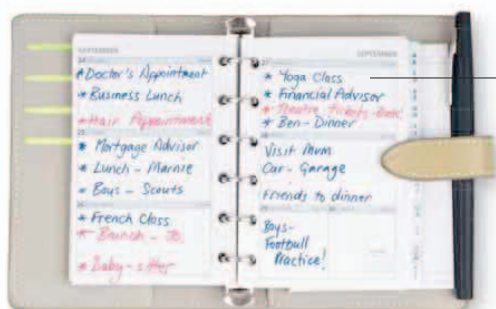 SEPTEMBER
24
* Doctor's Appointment
* Business Lunch
* Hair Appointment
25
* Mortgage Advisor
* Lunch - Marnie
* Boys - Scouts
* French Class
* Brunch - Jo
* Baby-sitter
SEPTEMBER
27
* Yoga Class
* Financial Advisor
* Theatre tickets
* Ben - Dinner
Visit Mum
Car - Garage
Friends to dinner
Boys-
Football
Practice!